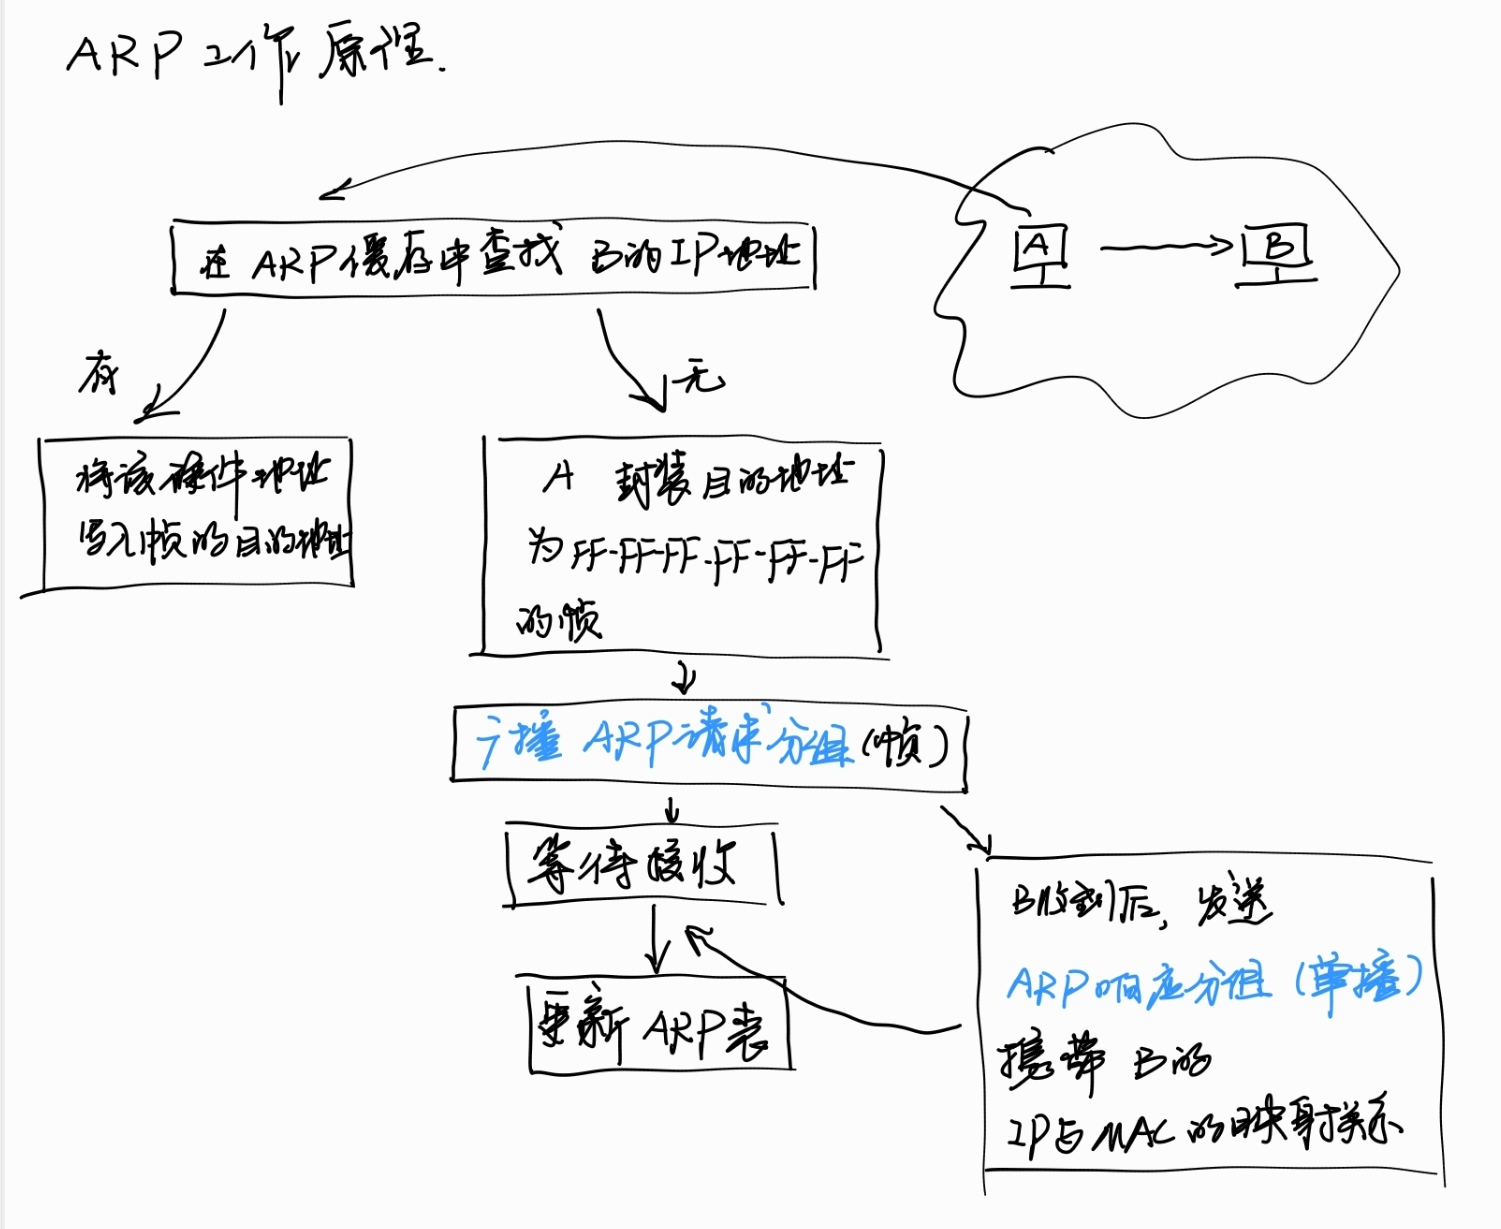 ARP工作原理.
在ARP缓存中查找 B的IP地址
A
B
有
无
将该硬件地址
写入帧的目的地址
A 封装目的地址
为FF-FF-FF-FF-FF-FF
的帧
广播 ARP请求分组(帧)
等待接收
更新 ARP表
B收到后, 发送
ARP响应分组(单播)
携带 B的
IP与MAC的映射关系